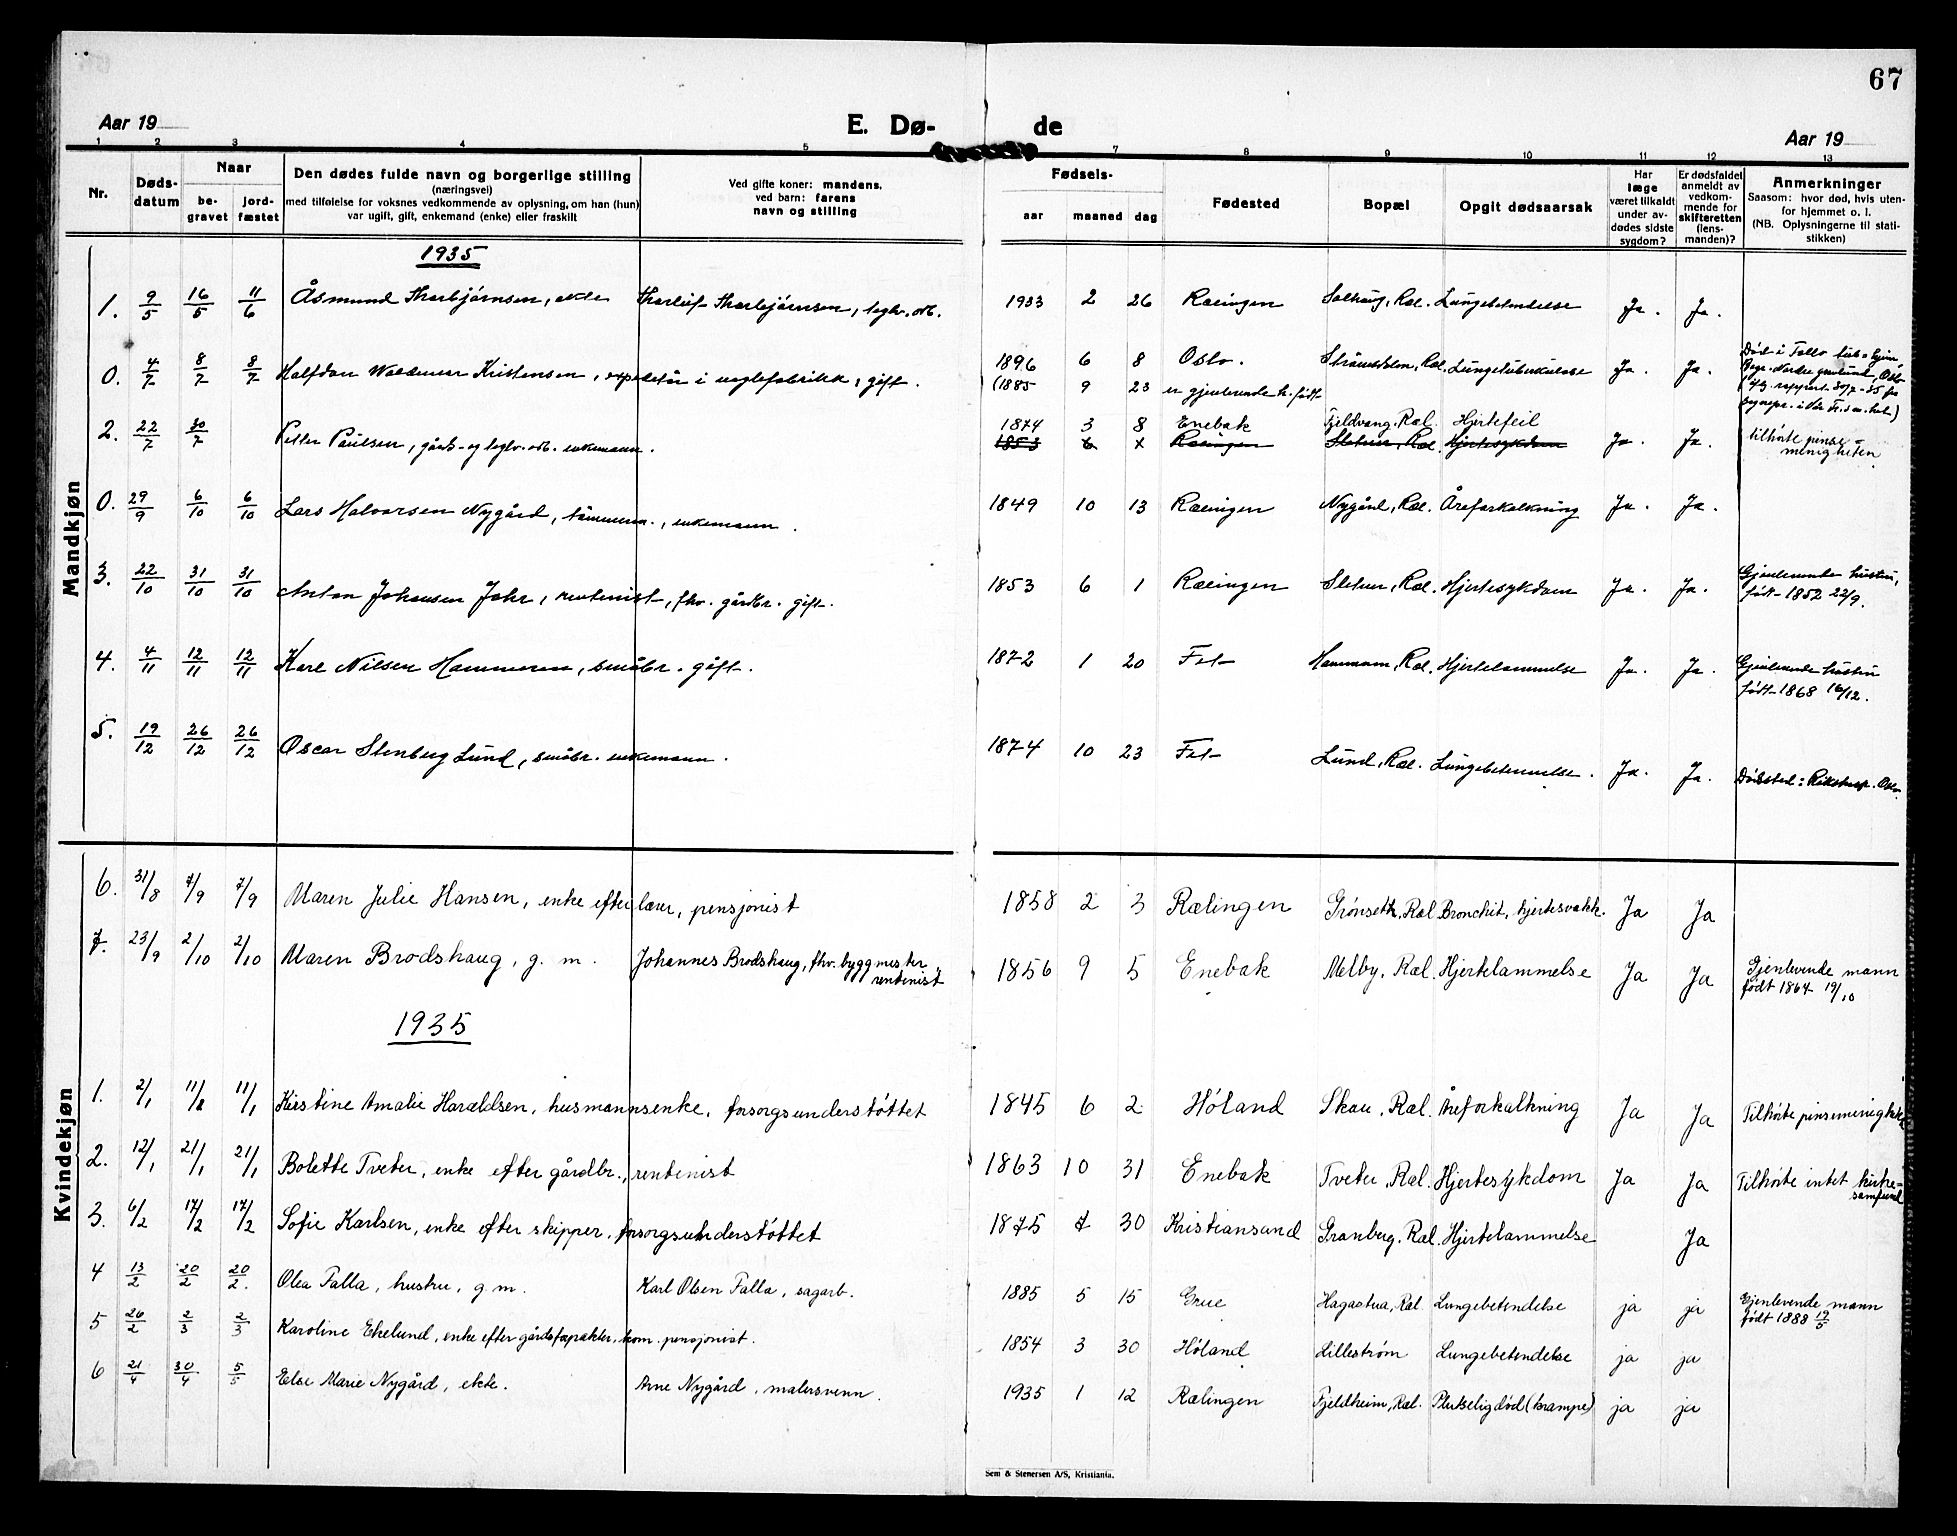 67
Aar 19
E. Dø- de
Aar 19
1 2 3 4 5 7 8 9 10 11 12 13
Nr. Døds-datum Naar be-gravet jord-fæstet
Den dødes fulde navn og borgerlige stilling
(næringsvei)
med tilføielse for voksnes vedkommende av oplysning, om han (hun)
var ugift, gift, enkemand (enke) eller fraskilt
Ved gifte koner: mandens,
ved barn: farens
navn og stilling
Fødsels-
aar maaned dag
Fødested
Bopæl
Opgit dødsaarsak
Har læge været tilkaldt under av-dødes sidste sygdom?
Er dødsfaldet anmeldt av vedkom-mende for skifteretten (lens-manden)?
Anmerkninger
Saasom: hvor død, hvis uten-
for hjemmet o. l.
(NB. Oplysningerne til stati-
stikken)
Mandkjøn
1935
1. 9/5 16/5 11/6 Åsmund Thorbjørnsen, ekte Thorleif Thorbjørnsen, teglv.arb. 1933 2 26 Rælingen Solhaug, Ræl. Lungebetendelse Ja. Ja.
0. 4/7 8/7 8/7 Halfdan Waldemar Kristensen, expeditør i uoglefabrikk, gift. 1896 6 8 Oslo. Ræl. Lungetuberkulose Ja. Ja. Død i
(1885 9 23 er gjenlevende h. født
2. 22/7 30/7 Petter Paulsen, gårds- og teglv.arb. enkemann. 1874 3 8 Enebak Fjeldvang, Ræl. Hjertefeil
1853 6 x Rælingen Sletner, Ræl. Hjertesykdom Ja. Ja. tilhørte pinse-
menigheten
0. 29/9 6/10 6/10 Lars Halvorsen Nygård, tømmerm., enkemann. 1849 10 13 Rælingen Nygård, Ræl. Åreforkalkning Ja. Ja.
3. 22/10 31/10 31/10 Anton Johansen Jahr, rentenist, fhv. gårdbr. gift. 1853 6 1 Rælingen Sletner, Ræl. Hjertesykdom Ja. Ja. Gjenlevende hustru,
født 1852 22/9.
4. 4/11 12/11 12/11 Karl Nilsen Hammeren, småbr. gift. 1872 1 20 Fet Hammeren, Ræl. Hjertelammelse Ja. Ja. Gjenlevende hustru
født 1868 16/12.
5. 19/12 26/12 26/12 Oscar Stenberg Lund, småbr. enkemann. 1874 10 23 Fet Lund, Ræl. Lungebetennelse. Ja. Ja. Dødssted: Rikshosp. Oslo.
Kvindekjøn
6. 31/8 7/9 7/9 Maren Julie Hansen, enke efter lærer, pensjonist 1858 2 3 Rælingen Grønseth, Ræl Bronchit, hjertesvakk. Ja Ja
7. 23/9 2/10 2/10 Maren Brodshaug, g. m. Johannes Brodshaug, fhv. byggmester
rentenist 1856 9 5 Enebak Melby, Ræl. Hjertelammelse Ja Ja Gjenlevende mann
født 1864 19/10
1935
1. 2/1 11/1 11/1 Kirstine Amalie Haraldsen, husmannsenke, forsorgsunderstøttet 1845 6 2 Høland Skau, Ræl. Åreforkalkning Ja Ja Tilhørte pinsemenighet
2. 12/1 21/1 21/1 Bolette Tveter, enke efter gårdbr., rentenist 1863 10 31 Enebak Tveter, Ræl. Hjertesykdom Ja Ja Tilhørte intet kirke-
samfund
3. 6/2 17/2 17/2 Sofie Karlsen, enke efter skipper, forsorgsunderstøttet 1875 7 30 Kristiansund Granberg, Ræl. Hjertelammelse Ja
4 13/2 20/2 20/2. Olea Falla, hustru, g.m. Karl Olsen Falla, sagarb. 1885 5 15 Grue Hagastua, Ræl. Lungebetendelse ja ja Gjenlevende mann
født 1888 19/5
5 26/2 2/3 2/3 Karoline Ekelund, enke efter gårdsforpakter, kom. pensjonist. 1854 3 30 Høland Lillestrøm Lungebetendelse ja ja
6 21/4 30/4 5/5 Else Marie Nygård, ekte. Arne Nygård, malersvenn. 1935 1 12 Rælingen Fjeldheim, Ræl. Plutselig død (krampe) ja ja
Sem & Stenersen A/S, Kristiania.